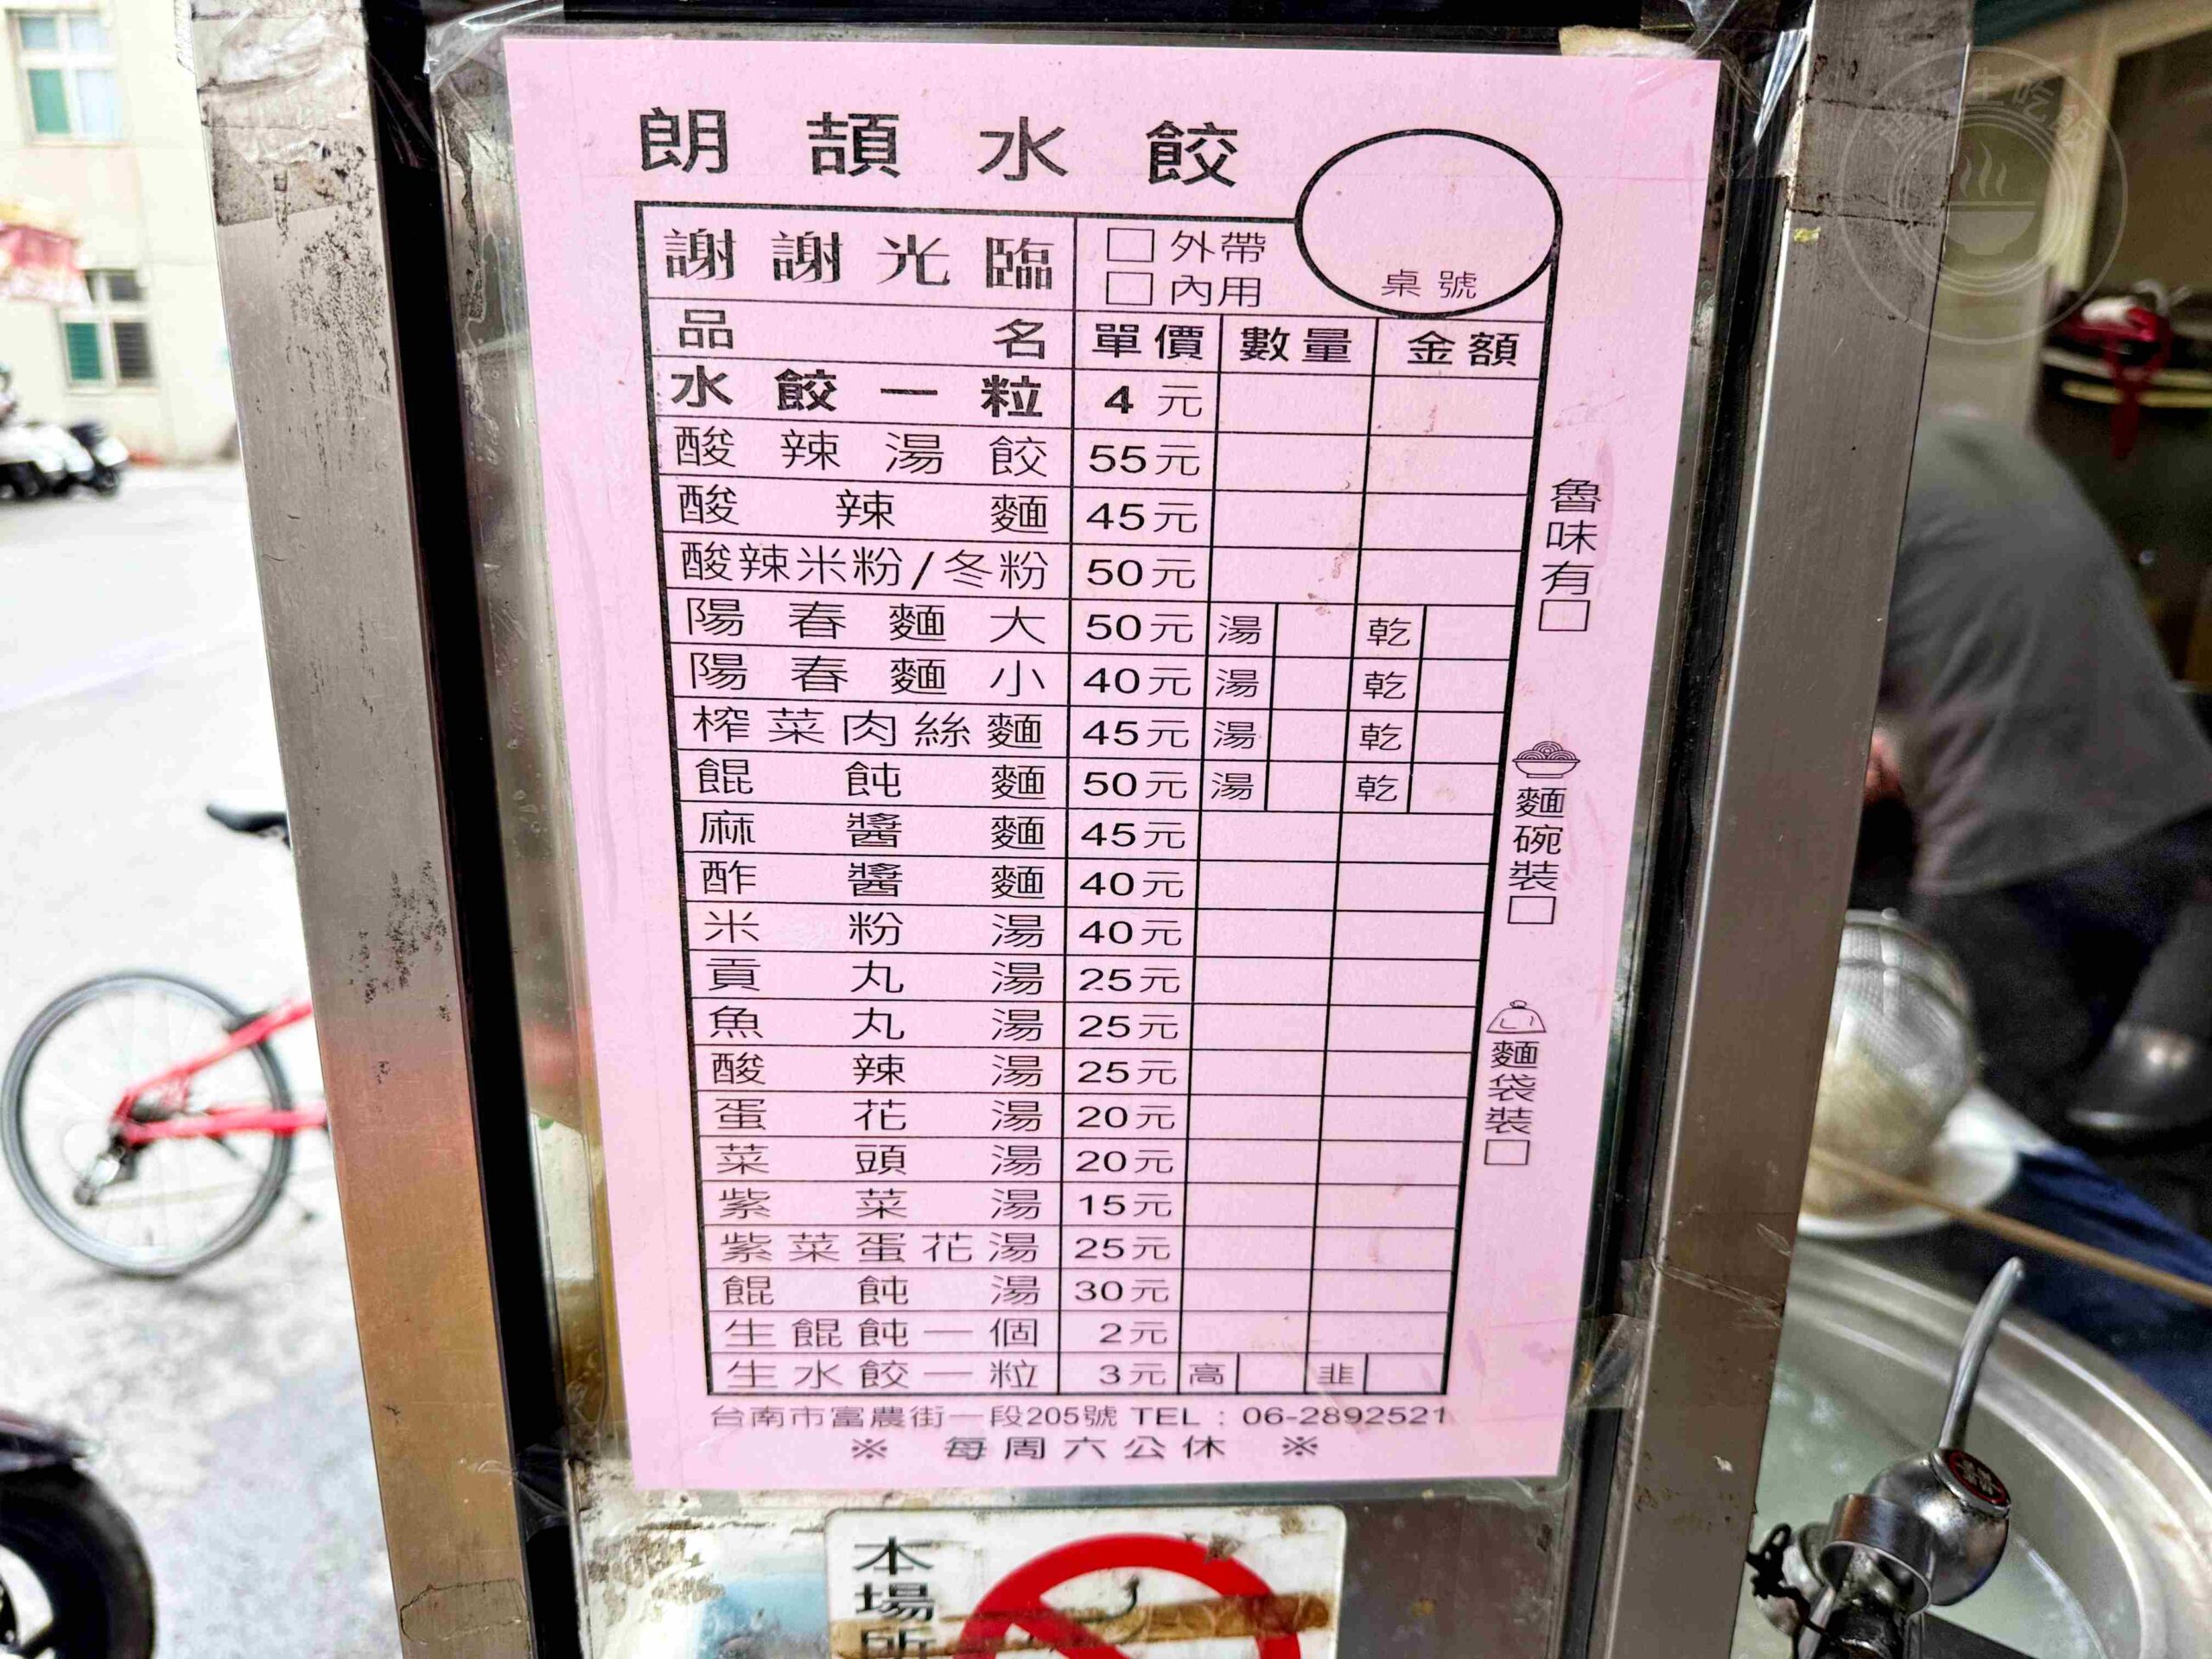 朗頡水餃
謝謝光臨 □外帶
□內用 桌號
品名 單價 數量 金額
水餃一粒 4元
酸辣湯餃 55元
酸辣麵 45元
酸辣米粉/冬粉 50元
陽春麵大 50元 湯 乾
陽春麵小 40元 湯 乾
榨菜肉絲麵 45元 湯 乾
餛飩麵 50元 湯 乾
麻醬麵 45元
酢醬麵 40元
米粉湯 40元
貢丸湯 25元
魚丸湯 25元
酸辣湯 25元
蛋花湯 20元
菜頭湯 20元
紫菜湯 15元
紫菜蛋花湯 25元
餛飩湯 30元
生餛飩一個 2元
生水餃一粒 3元 高 韭
魯味有□
麵碗裝□
麵袋裝□
台南市富農街一段205號 TEL：06-2892521
※ 每周六公休 ※
本場所